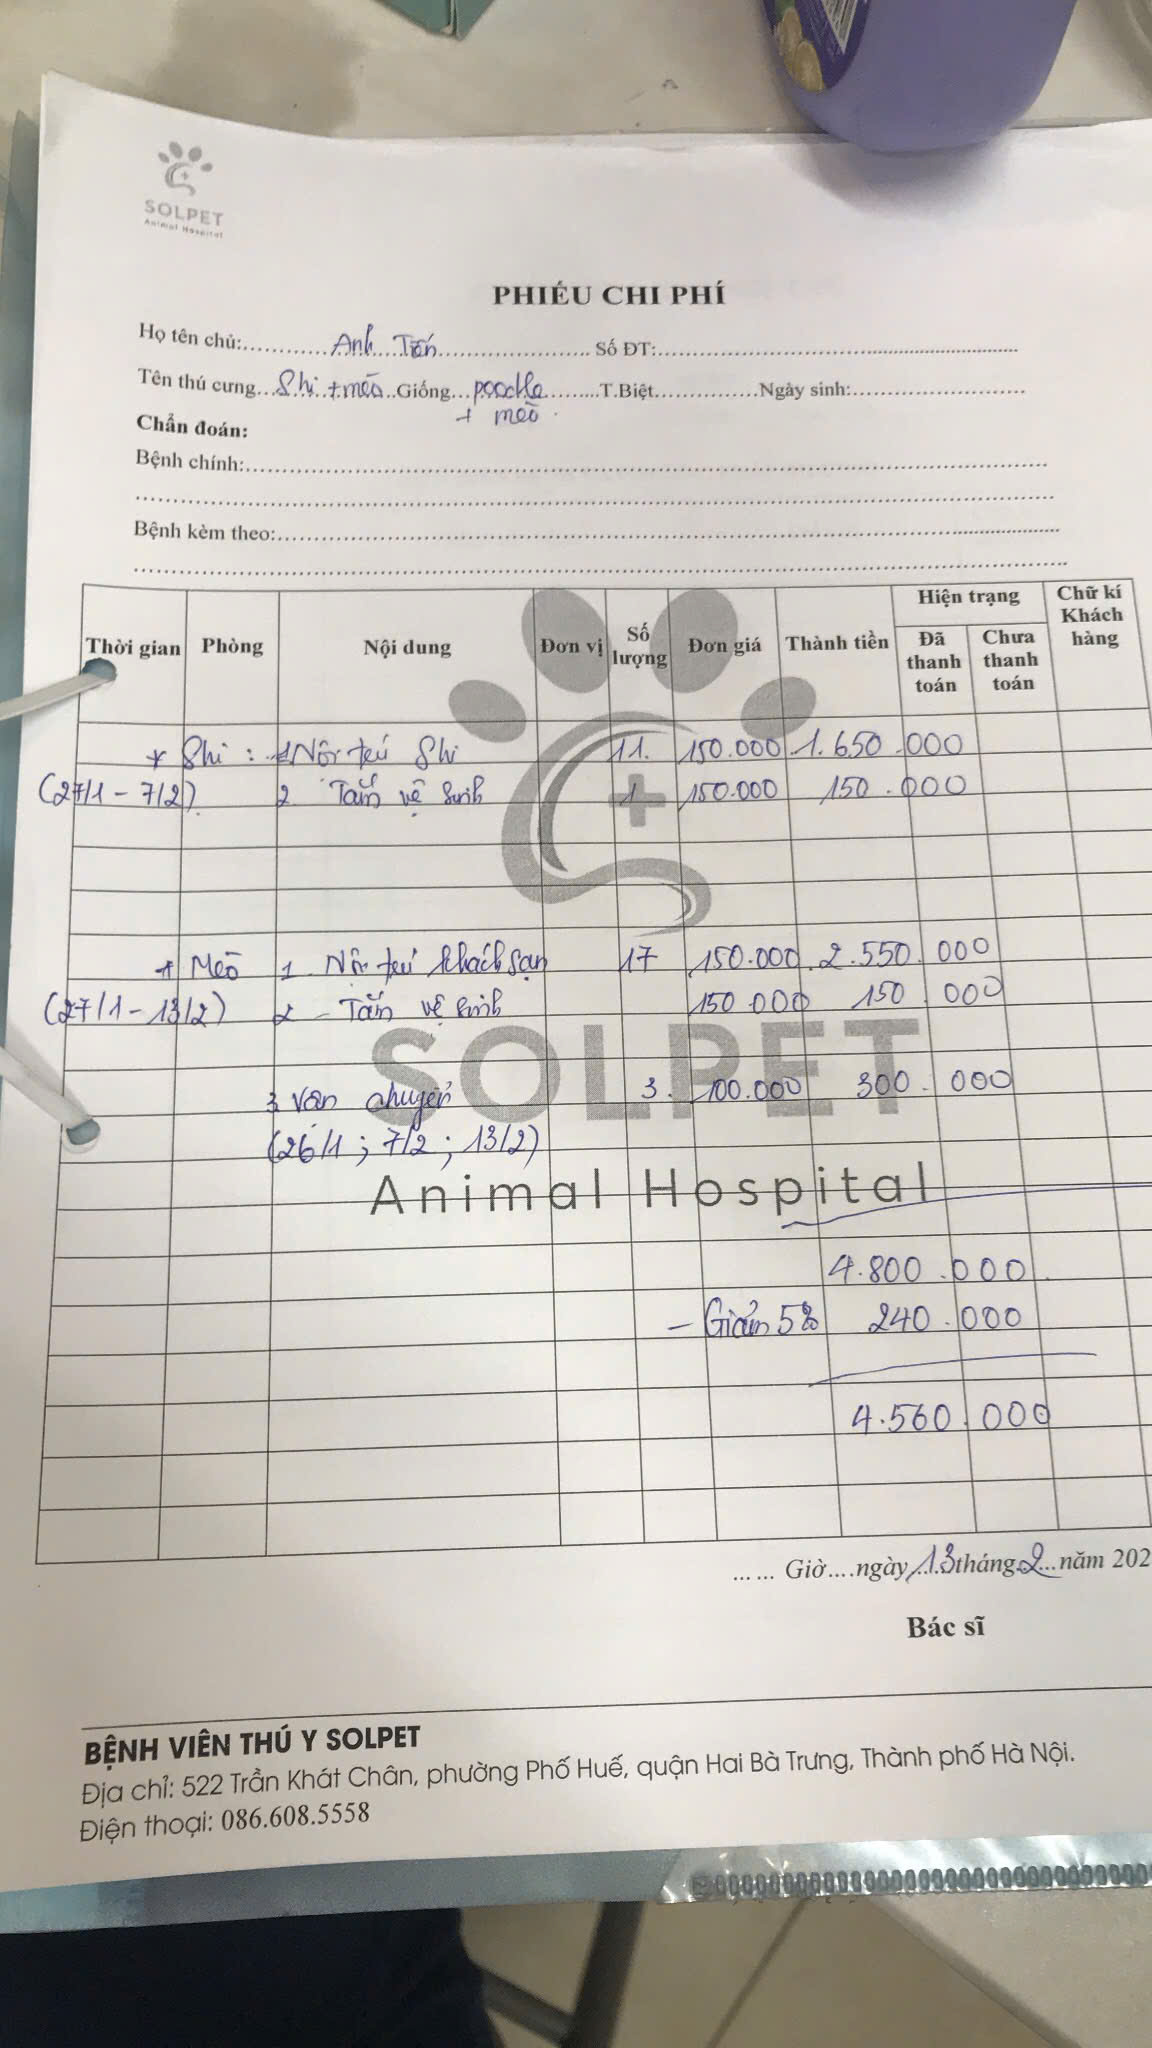 SOLPET
Animal Hospital
PHIẾU CHI PHÍ
Họ tên chủ:............Anh Tấn...................... Số ĐT:..............................
Tên thú cưng...Shi + mèo..Giống...poodle.........T.Biệt...............Ngày sinh:..........................
+ mèo.
Chẩn đoán:
Bệnh chính:..............................
Bệnh kèm theo:..............................
Thời gian Phòng Nội dung Đơn vị Số lượng Đơn giá Thành tiền Hiện trạng Đã thanh toán Chưa thanh toán Chữ kí Khách hàng
* Shi : 1 Nội trú Shi 11. 150.000 1.650.000
(27/1 - 7/2) 2. Tắm vệ sinh 1 150.000 150.000
+ Mèo 1. Nội trú khách sạn 17 150.000 2.550.000
(27/1 - 13/2) 2 - Tắm vệ sinh 150 000 150.000
3. Vận chuyển 3. 100.000 300.000
(26/1 ; 7/2 ; 13/2)
SOLPET
Animal Hospital
4.800.000
- Giảm 5% 240.000
4.560.000
...... Giờ....ngày 13 tháng 2...năm 202
Bác sĩ
BỆNH VIÊN THÚ Y SOLPET
Địa chỉ: 522 Trần Khát Chân, phường Phố Huế, quận Hai Bà Trưng, Thành phố Hà Nội.
Điện thoại: 086.608.5558